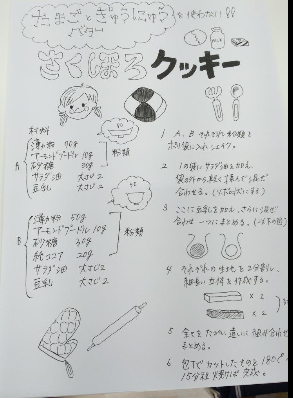 たまごとぎゅうにゅう
バター
を使わない!!
さくほろクッキー
材料
A
薄力粉 70g
アーモンドプードル 10g
砂糖 30g
粉類
サラダ油 大さじ2
豆乳 大さじ2
B
薄力粉 50g
アーモンドプードル 10g
砂糖 30g
純ココア 20g
粉類
サラダ油 大さじ2
豆乳 大さじ2
1 A、B それぞれ粉類を
ポリ袋に入れシェイク。
2 1の袋にサラダ油を加え
袋の外から軽く揉んで混ぜ
合わせる。
3 ここに豆乳を加え、さらに混ぜ
合わせ一つにまとめる。
4 それぞれの生地を2分割し、
細長い直方体を作成する。
×2
×2
5 全てをたがい違いに組み合わせ
まとめる。
6 包丁でカットしたものを180℃
15分程焼けば完成。